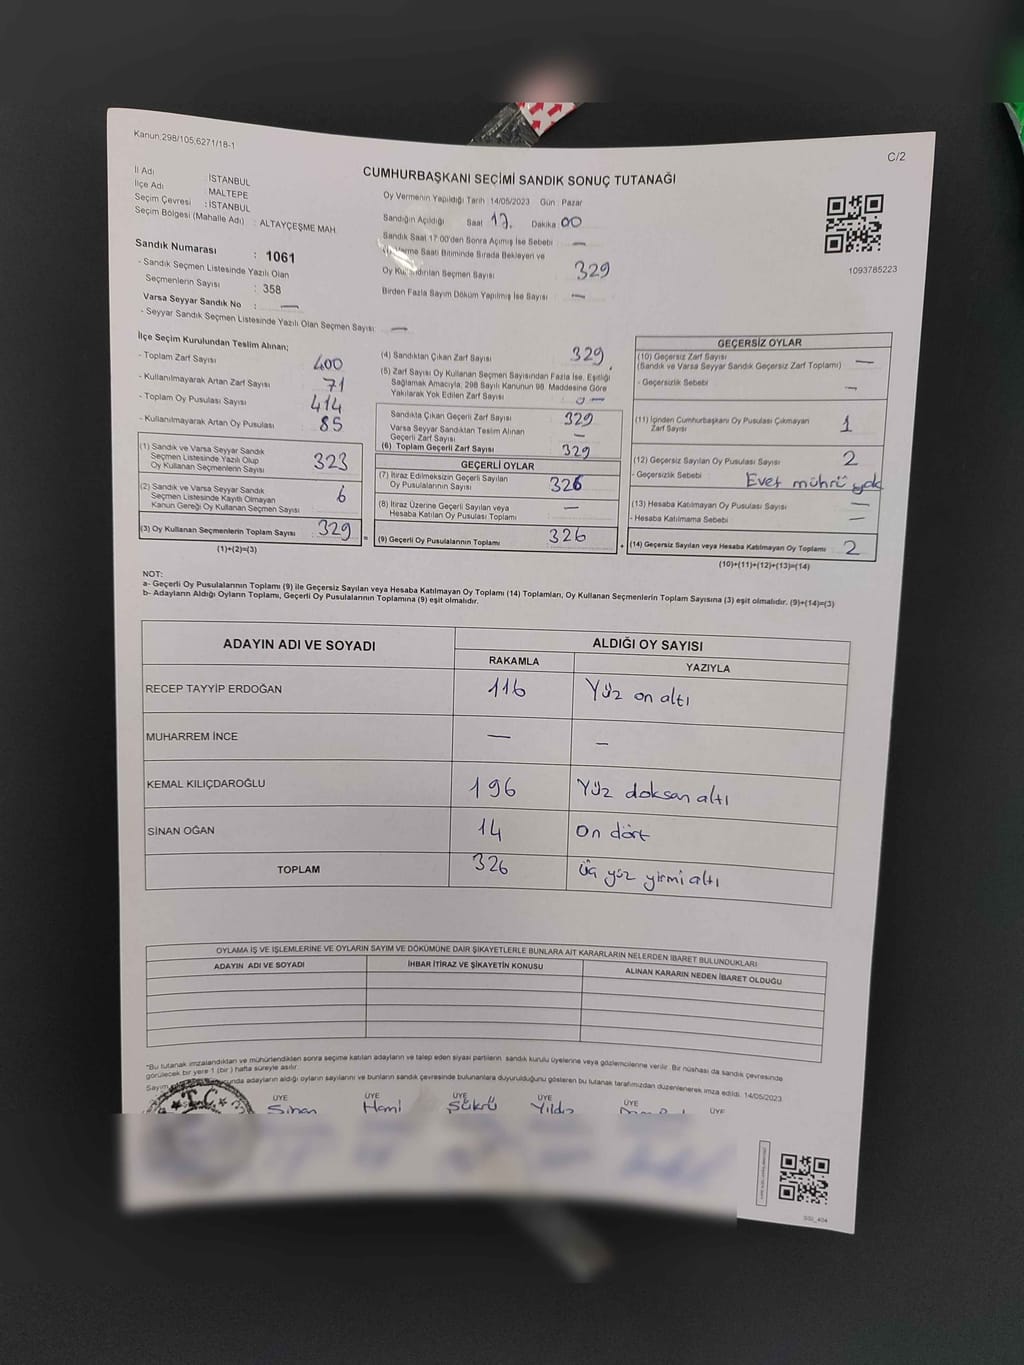 Kanun:298/105,6271/18-1
C/2
CUMHURBAŞKANI SEÇİMİ SANDIK SONUÇ TUTANAĞI
İl Adı : İSTANBUL
İlçe Adı : MALTEPE
Seçim Çevresi : İSTANBUL
Seçim Bölgesi (Mahalle Adı) : ALTAYÇEŞME MAH.
Sandık Numarası : 1061
- Sandık Seçmen Listesinde Yazılı Olan
Seçmenlerin Sayısı : 358
Varsa Seyyar Sandık No : —
- Seyyar Sandık Seçmen Listesinde Yazılı Olan Seçmen Sayısı: —
Oy Vermenin Yapıldığı Tarih 14/05/2023 Gün : Pazar
Sandığın Açıldığı Saat 17. Dakika 00
Sandık Saat 17:00'den Sonra Açımış İse Sebebi —
Verme Saati Bitiminde Sırada Bekleyen ve
Oy Kullandırılan Seçmen Sayısı 329
Birden Fazla Sayım Döküm Yapılmış İse Sayısı —
1093785223
İlçe Seçim Kurulundan Teslim Alınan;
- Toplam Zarf Sayısı 400
- Kullanılmayarak Artan Zarf Sayısı 71
- Toplam Oy Pusulası Sayısı 414
- Kullanılmayarak Artan Oy Pusulası 85
(1) Sandık ve Varsa Seyyar Sandık
Seçmen Listesinde Yazılı Olup
Oy Kullanan Seçmenlerin Sayısı 323
(2) Sandık ve Varsa Seyyar Sandık
Seçmen Listesinde Kayıtlı Olmayan
Kanun Gereği Oy Kullanan Seçmen Sayısı 6
(3) Oy Kullanan Seçmenlerin Toplam Sayısı 329 =
(1)+(2)=(3)
(4) Sandıktan Çıkan Zarf Sayısı 329
(5) Zarf Sayısı Oy Kullanan Seçmen Sayısından Fazla İse, Eşitliği
Sağlamak Amacıyla, 298 Sayılı Kanunun 98. Maddesine Göre
Yakılarak Yok Edilen Zarf Sayısı —
Sandıkta Çıkan Geçerli Zarf Sayısı 329
Varsa Seyyar Sandıktan Teslim Alınan
Geçerli Zarf Sayısı —
(6) Toplam Geçerli Zarf Sayısı 329
GEÇERLİ OYLAR
(7) İtiraz Edilmeksizin Geçerli Sayılan
Oy Pusulalarının Sayısı 326
(8) İtiraz Üzerine Geçerli Sayılan veya
Hesaba Katılan Oy Pusulası Toplamı —
(9) Geçerli Oy Pusulalarının Toplamı 326 +
GEÇERSİZ OYLAR
(10) Geçersiz Zarf Sayısı
(Sandık ve Varsa Seyyar Sandık Geçersiz Zarf Toplamı) —
- Geçersizlik Sebebi —
(11) İçinden Cumhurbaşkanı Oy Pusulası Çıkmayan
Zarf Sayısı 1
(12) Geçersiz Sayılan Oy Pusulası Sayısı 2
- Geçersizlik Sebebi Evet mührü yok
(13) Hesaba Katılmayan Oy Pusulası Sayısı —
- Hesaba Katılmama Sebebi —
(14) Geçersiz Sayılan veya Hesaba Katılmayan Oy Toplamı 2
(10)+(11)+(12)+(13)=(14)
NOT:
a- Geçerli Oy Pusulalarının Toplamı (9) ile Geçersiz Sayılan veya Hesaba Katılmayan Oy Toplamı (14) Toplamları, Oy Kullanan Seçmenlerin Toplam Sayısına (3) eşit olmalıdır. (9)+(14)=(3)
b- Adayların Aldığı Oyların Toplamı, Geçerli Oy Pusulalarının Toplamına (9) eşit olmalıdır.
ADAYIN ADI VE SOYADI
ALDIĞI OY SAYISI
RAKAMLA YAZIYLA
RECEP TAYYİP ERDOĞAN 116 Yüz on altı
MUHARREM İNCE — —
KEMAL KILIÇDAROĞLU 196 Yüz doksan altı
SİNAN OĞAN 14 On dört
TOPLAM 326 üç yüz yirmi altı
OYLAMA İŞ VE İŞLEMLERİNE VE OYLARIN SAYIM VE DÖKÜMÜNE DAİR ŞİKAYETLERLE BUNLARA AİT KARARLARIN NELERDEN İBARET BULUNDUKLARI
ADAYIN ADI VE SOYADI İHBAR İTİRAZ VE ŞİKAYETİN KONUSU ALINAN KARARIN NEDEN İBARET OLDUĞU
"Bu tutanak imzalandıktan ve mühürlendikten sonra seçime katılan adayların ve talep eden siyasi partilerin sandık kurulu üyelerine veya gözlemcilerine verilir. Bir nüshası da sandık çevresinde
görülecek bir yere 1 (bir) hafta süreyle asılır.
Sayım adayların aldığı oyların sayılarını ve bunların sandık çevresinde bulunanlara duyurulduğunu gösteren bu tutanak tarafımızdan düzenlenerek imza edildi. 14/05/2023
T.C.
ÜYE ÜYE ÜYE ÜYE ÜYE ÜYE
Sinan Hami Şükrü Yıldız